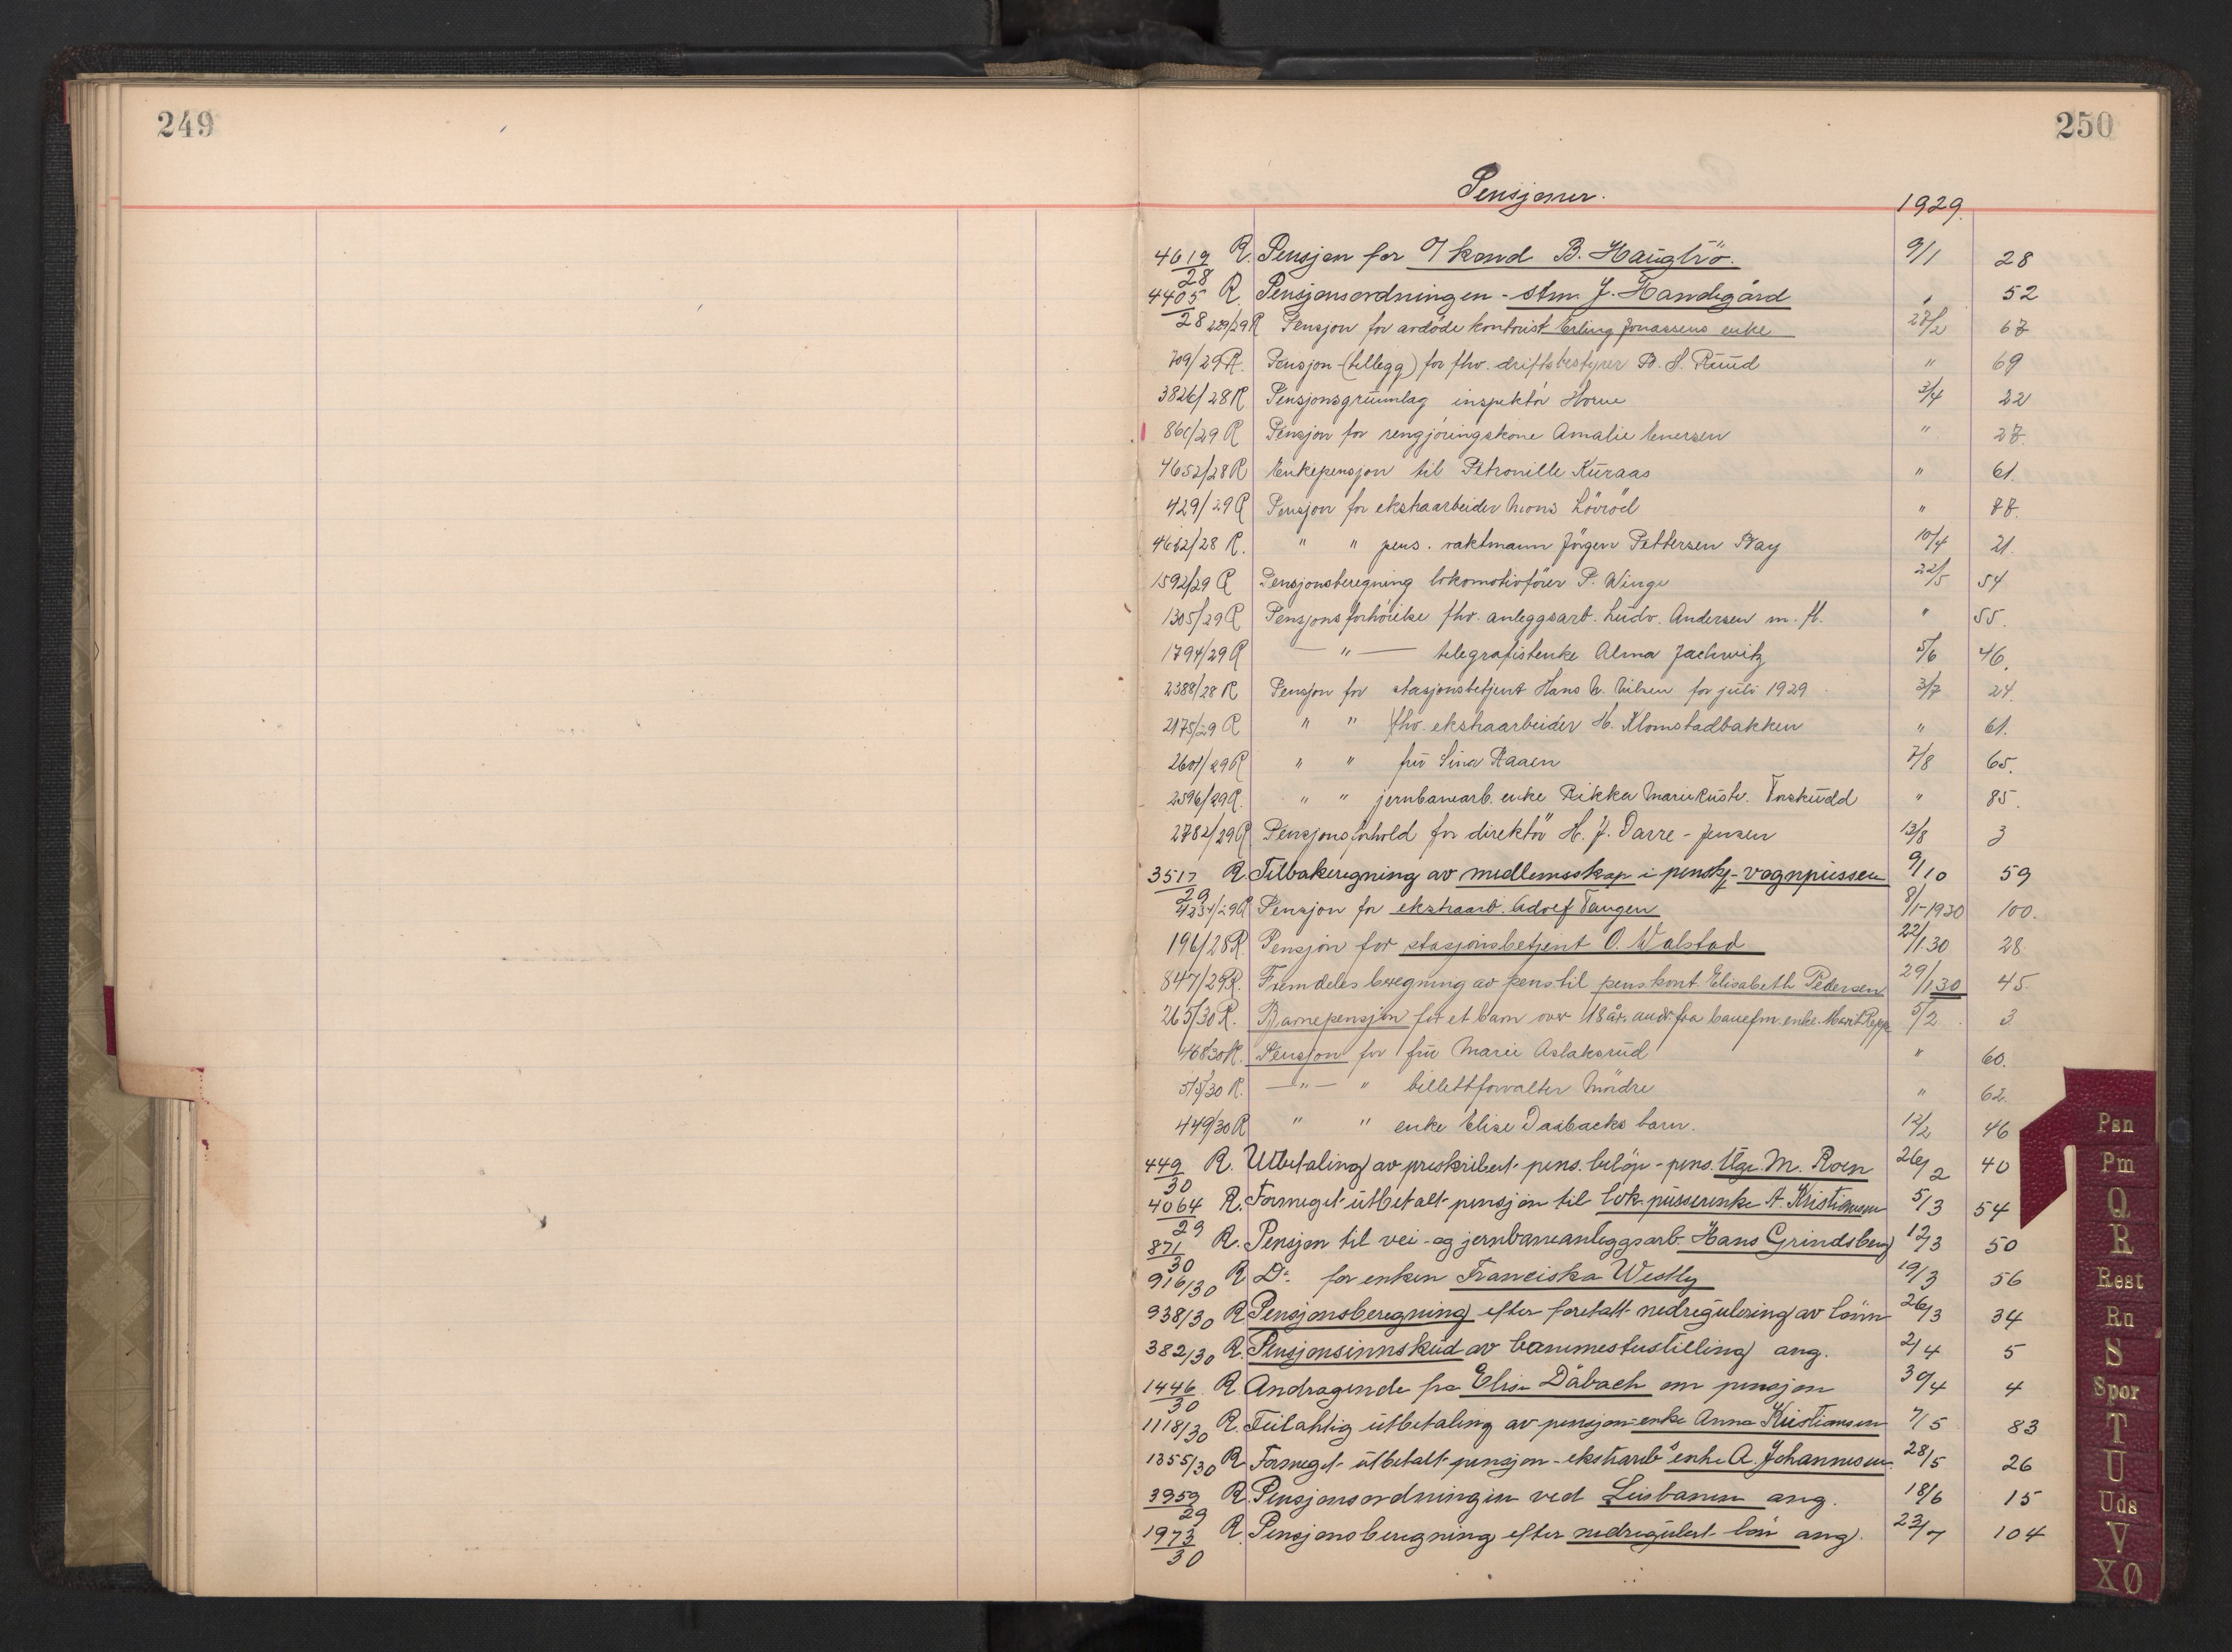 249
250
Pensjoner.
1929.
4619/28 R. Pensjon for o/kond B. Haugtrö. 9/1 28
4405/28 R. Pensjonsordningen - stm. J. Handegård " 52
229/29 R Pensjon for avdöde kontorist Erling Jonassens enke 27/2 67
709/29 R. Pensjon-(tillegg) for fhv. driftsbestyrer B. S. Ruud " 69
3826/28 R Pensjonsgrunnlag inspektör Horne 3/4 22
861/29 R Pensjon for rengjöringskone Amalie Enersen " 27.
4652/28 R Enkepensjon til Petronille Kuraas " 61.
429/29 R Pensjon for ekstraarbeider Mons Lövröd " 77.
4612/28 R. " " pens. vaktmann Jörgen Pettersen Bay 10/4 21.
1592/29 R Pensjonsberegning lokomotivförer P. Winge 22/5 54
1305/29 R Pensjonsforhöielse fhv. anleggsarb. Ludv. Andersen m. fl. " 55.
1794/29 R — " — telegrafistenke Alma Jachwitz 5/6 46.
2388/28 R Pensjon for stasjonsbetjent Hans N. Nilsen for juli 1929 3/7 24.
2175/29 R " " fhv. ekstraarbeider H. Klomstadbakken " 61.
2601/29 R " " fru Sina Raaen 7/8 65.
2596/29 R. " " jernbanearb. enke Rikka Marie Kristv. Torskudd " 85.
2782/29 R Pensjonsforhold for direktör H. J. Darre-Jensen 13/8 3
3517/29 R Tilbakeregning av medlemsskap i penskj- vognpussen 9/10 59
4234/29 R Pensjon for ekstraarb. Adolf Tangen 8/1-1930 100.
196/28 R. Pensjon for stasjonsbetjent O. Walstad 22/1.30 28
847/29 R. Fremdeles beregning av pens. til pens. kont. Elisabeth Pedersen 29/1 30 45.
265/30 R. Barnepensjon for et barn over 18 år. andr. fra banefm. enke Marit Repp 5/2 3
468/30 R. Pensjon for fru Marie Aslaksrud " 60.
515/30 R. —"— " billettforvalter Mördre " 62.
449/30 R " " enke Elise Daabacks barn. 12/2 46
449/30 R. Utbetaling av preskribert pens. belöp - pens. tlgr. M. Roen 26/2 40
4064/29 R. Formeget utbetalt pensjon til lok. pusserenke A. Kristiansen 5/3 54
871/30 R. Pensjon til vei- og jernbaneanleggsarb- Hans Grindsberg 12/3 50
916/30 R Do. for enken Franciska Westly 19/3 56
938/30 R Pensjonsberegning efter foretatt nedregulering av lönn 26/3 34
382/30 R. Pensjonsinnskud av banemesterstilling ang. 2/4 5
1446/30 R. Andragende fra Elise Dåbach om pensjon 30/4 4
1118/30 R. Feilaktig utbetaling av pensjon-enke Anna Kristiansen 7/5 83
1355/30 R Formeget utbetalt pensjon - ekstrarbs enke A. Johannesen. 28/5 26
3959/29 R. Pensjonsordningen ved Leisbanen ang. 18/6 15
1973/30 R. Pensjonsberegning efter nedregulert lön ang. 23/7 104
Psn
Pm
Q
R
Rest
Ru
S
Spor
T
U
Uds
V
XØ